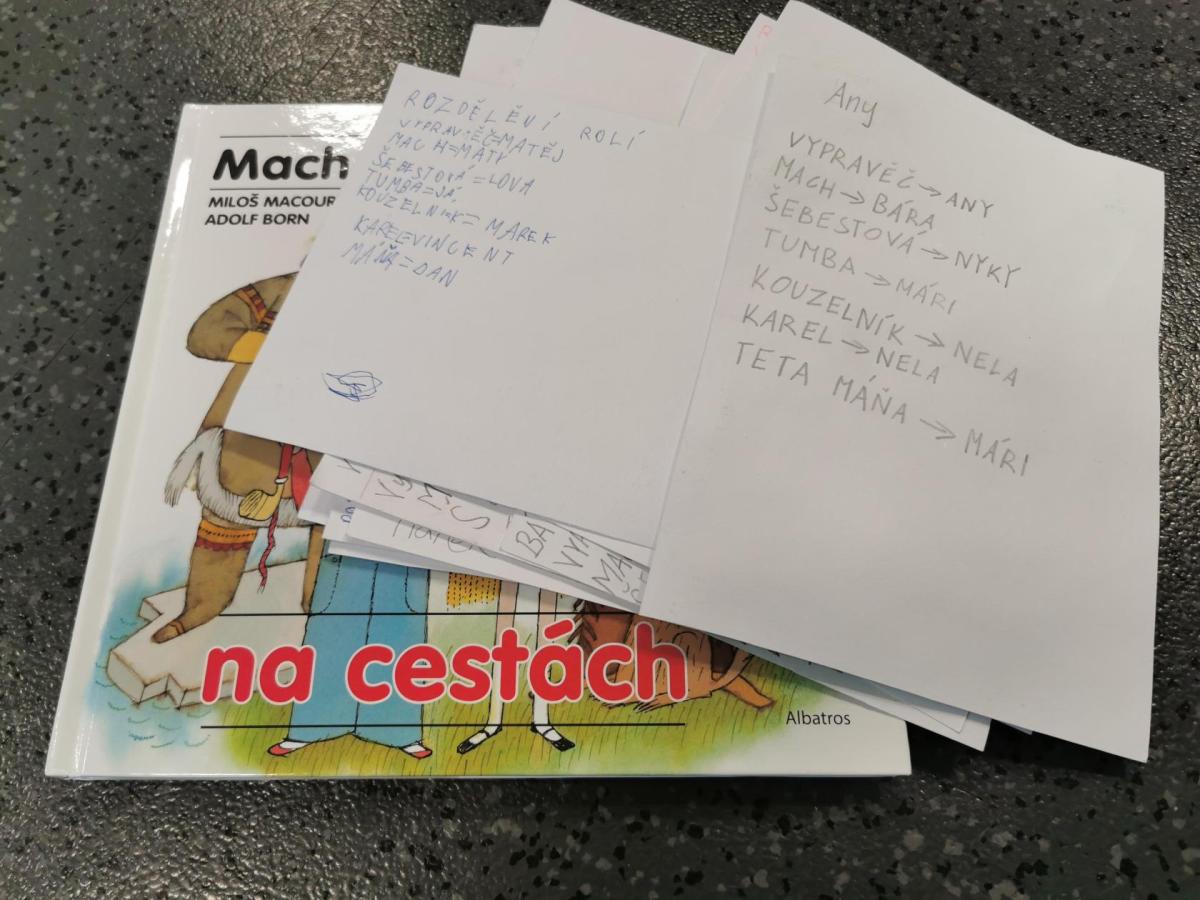 Mach
MILOŠ MACOUR
ADOLF BORN
ROZDĚLĚNÍ ROLÍ
VYPRAVĚČ=MATĚJ
MACH=MATY
ŠEBESTOVÁ=LOVA
TUMBA=JÁ
KOUZELNíK=MAREK
KAREL=VINCENT
MÁŇA=DAN
Any
VYPRAVĚČ→ANY
MACH→BÁRA
ŠEBESTOVÁ→NYKY
TUMBA→MÁRI
KOUZELNÍK→NELA
KAREL→NELA
TETA MÁŇA→MÁRI
na cestách
Albatros